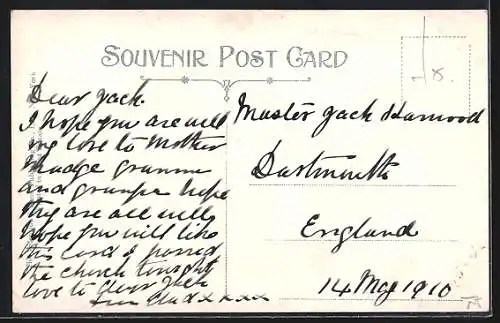 SOUVENIR POST CARD
Dear Jack.
I hope you are well
my love to Mother
Madge granma
and granpa hope
they are all well
hope you will like
this card I passed
the church tonight
love to dear Jack
from Dad xxxxx
Master Jack Hamood
Dartmouth
England
14 May 1910